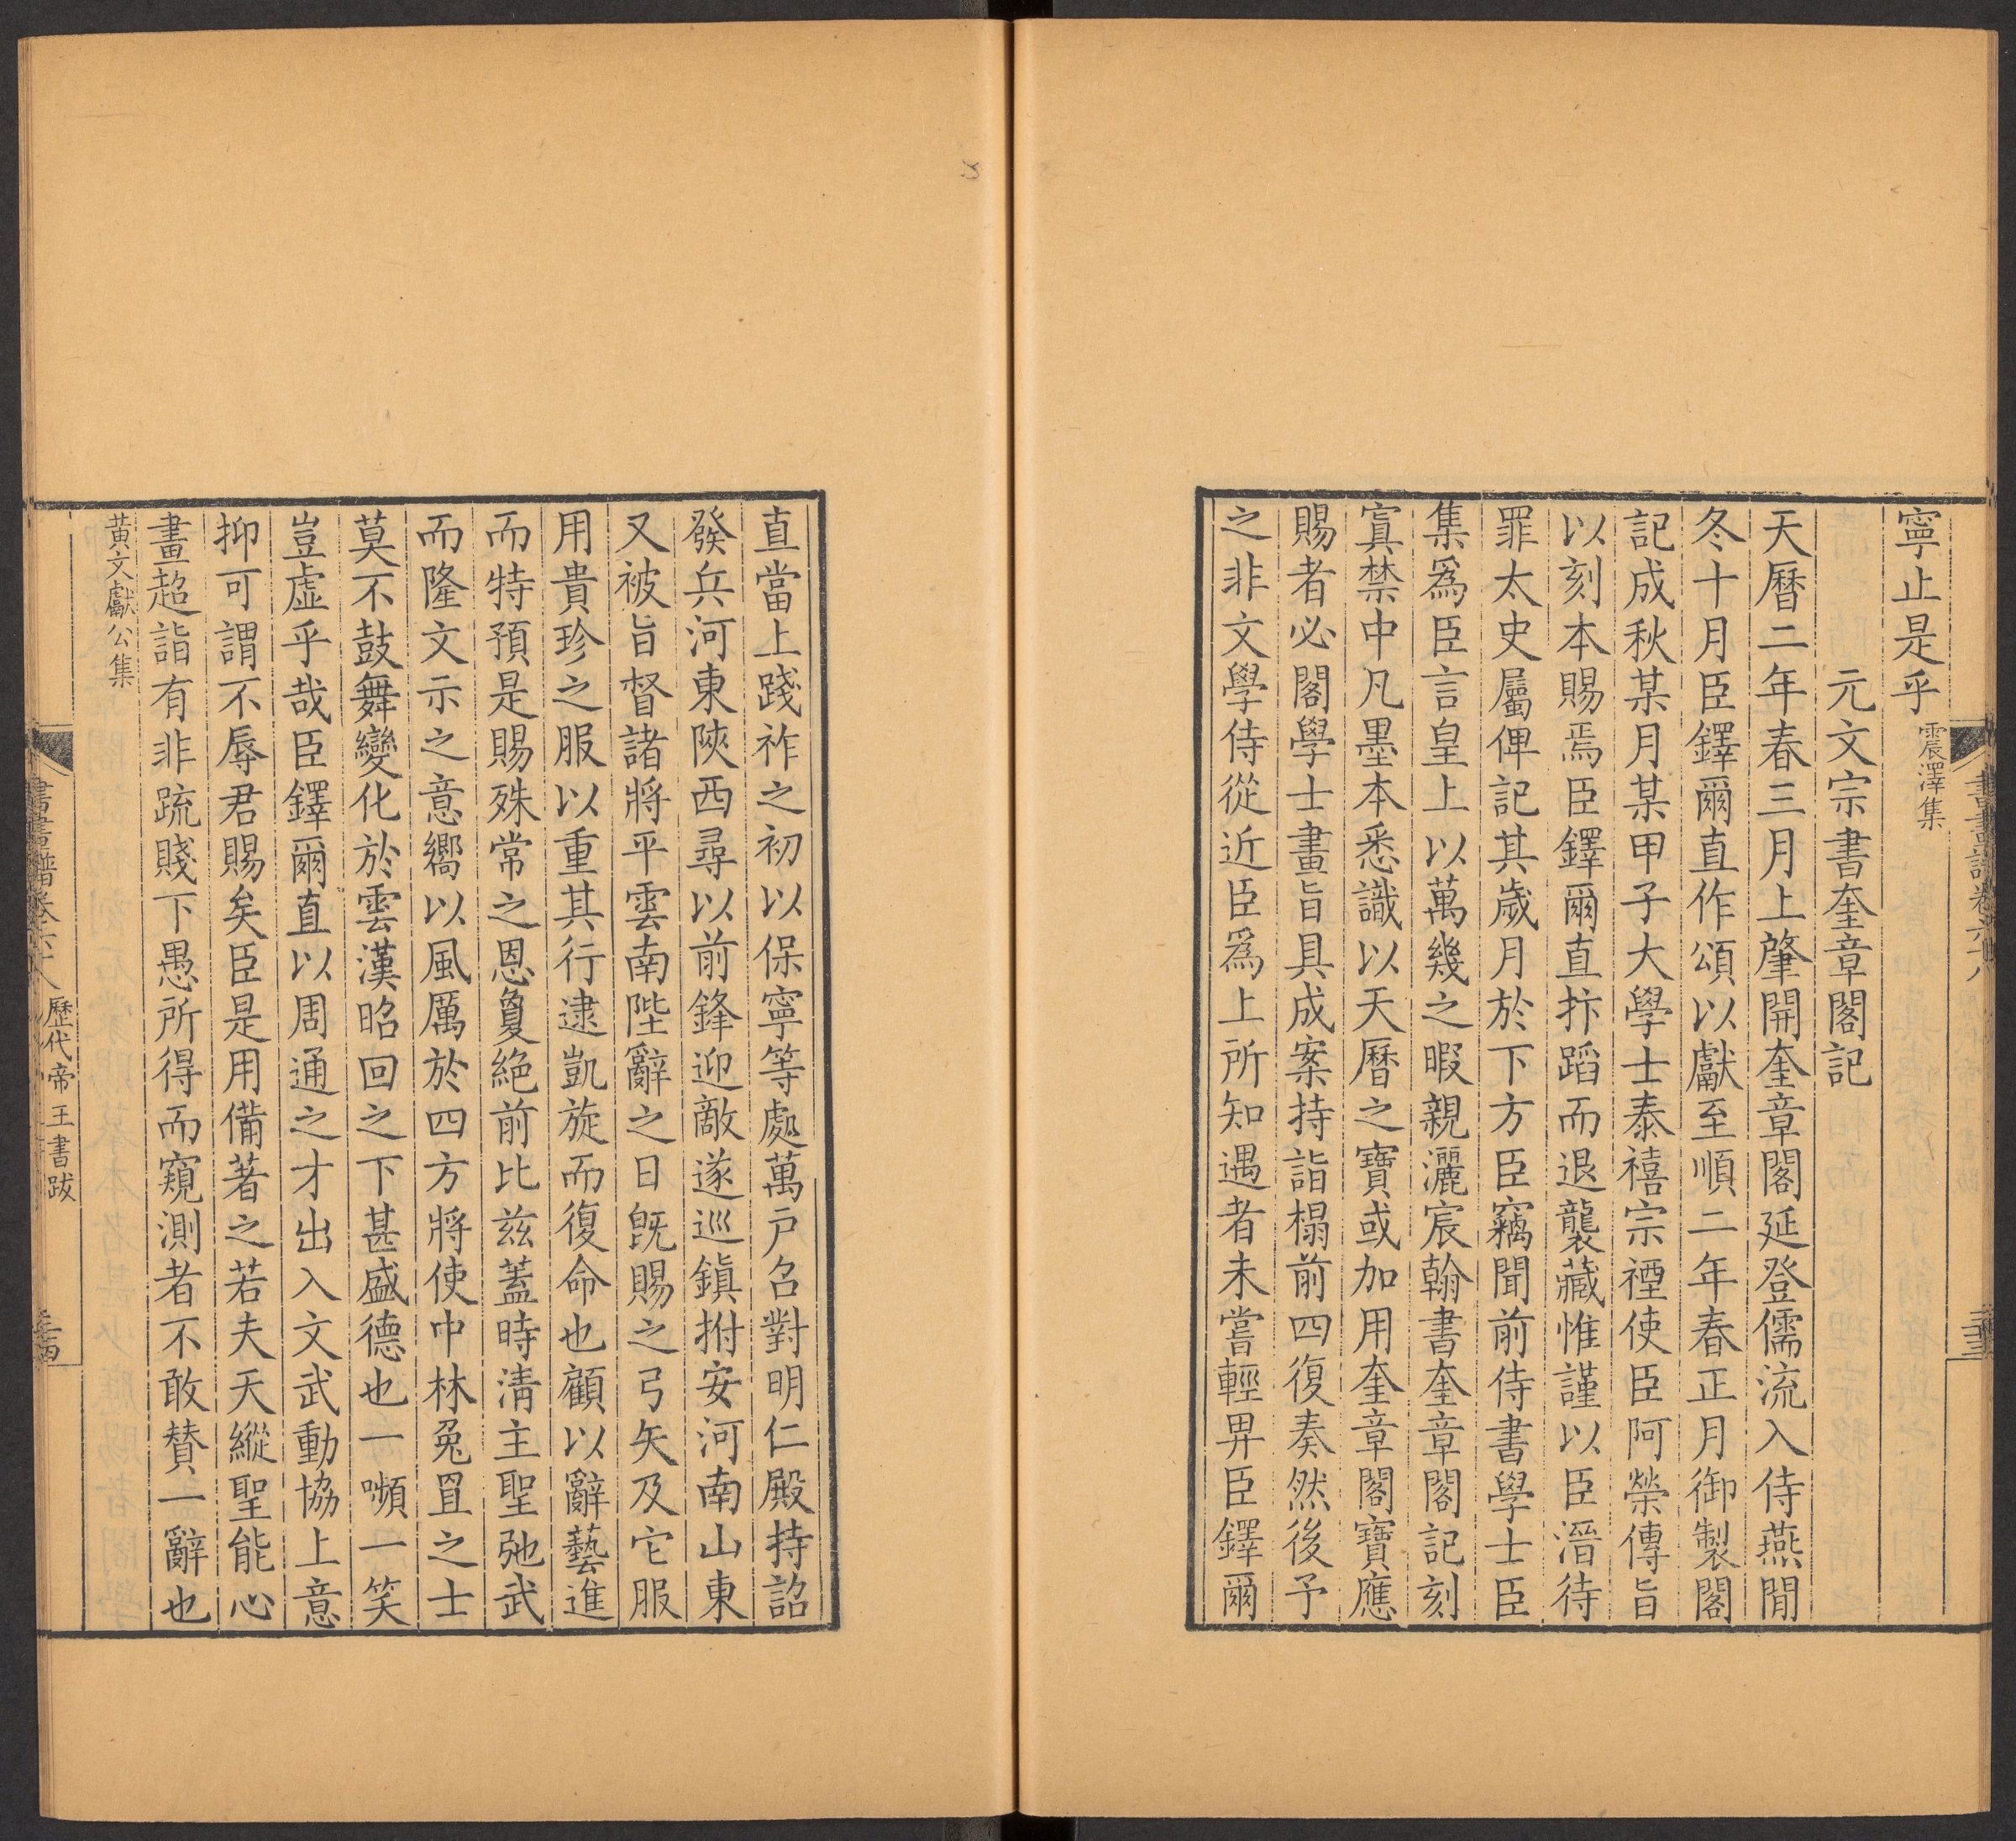 寧止是乎震澤集
元文宗書奎章閣記
天曆二年春三月上肇開奎章閣延登儒流入侍燕閒
冬十月臣鐸爾直作頌以獻至順二年春正月御製閣
記成秋某月某甲子大學士泰禧宗禋使臣阿榮傳旨
以刻本賜焉臣鐸爾直抃蹈而退襲藏惟謹以臣溍待
罪太史屬俾記其歲月於下方臣竊聞前侍書學士臣
集爲臣言皇上以萬幾之暇親灑宸翰書奎章閣記刻
寘禁中凡墨本悉識以天曆之寶或加用奎章閣寶應
賜者必閣學士畫旨具成案持詣榻前四復奏然後予
之非文學侍從近臣爲上所知遇者未嘗輕畀臣鐸爾
直當上踐祚之初以保寧等處萬戶召對明仁殿持詔
發兵河東陝西尋以前鋒迎敵遂巡鎮拊安河南山東
又被旨督諸將平雲南陛辭之日旣賜之弓矢及它服
用貴珍之服以重其行逮凱旋而復命也顧以辭藝進
而特預是賜殊常之恩敻絶前比茲蓋時淸主聖弛武
而隆文示之意嚮以風厲於四方將使中林兔罝之士
莫不鼓舞變化於雲漢昭回之下甚盛德也一嚬一笑
豈虛乎哉臣鐸爾直以周通之才出入文武動協上意
抑可謂不辱君賜矣臣是用備著之若夫天縱聖能心
畫超詣有非疏賤下愚所得而窺測者不敢贊一辭也
黃文獻公集
書畫譜卷六十八 歷代帝王書跋